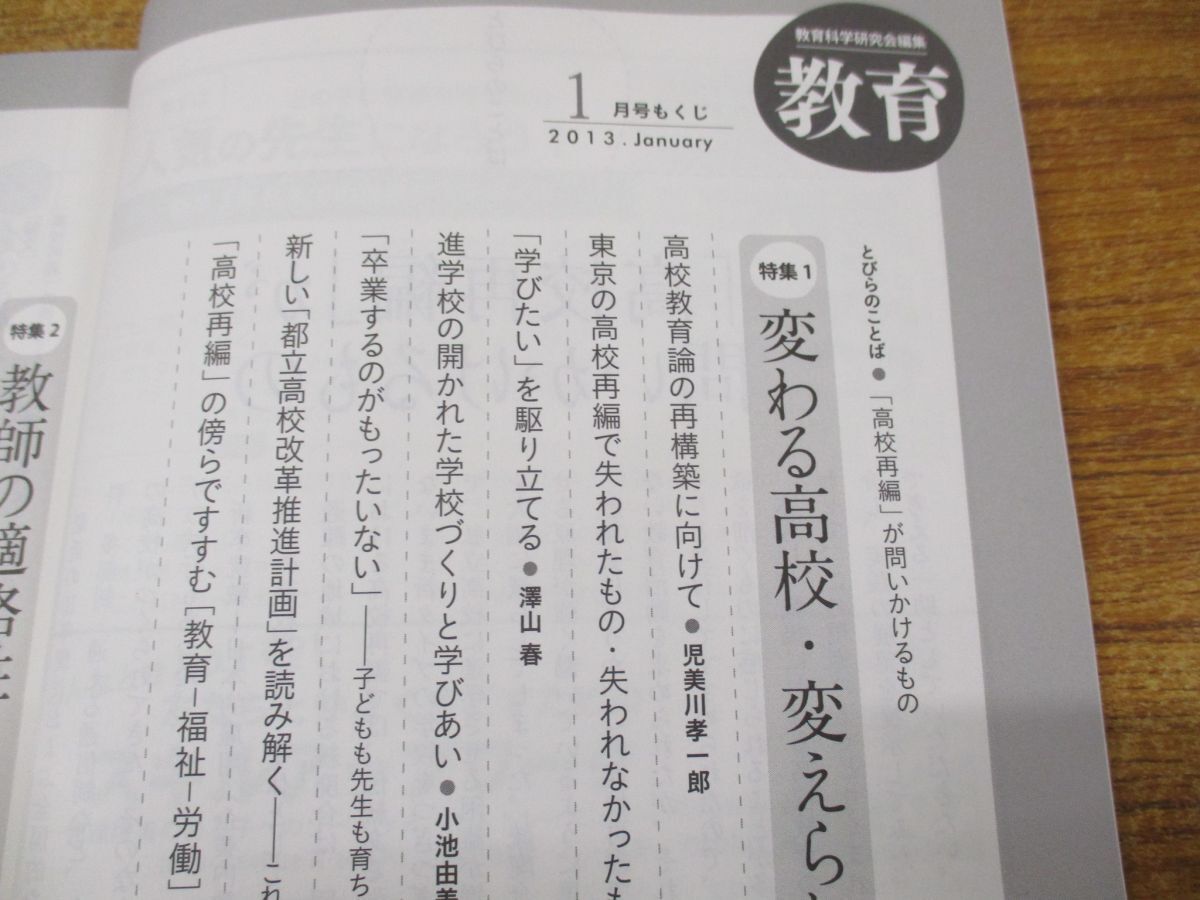 教育科学研究会編集
教育
1月号もくじ
2013.January
とびらのことば●「高校再編」が問いかけるもの
特集1
変わる高校・変えら
高校教育論の再構築に向けて●児美川孝一郎
東京の高校再編で失われたもの・失われなかったも
「学びたい」を駆り立てる●澤山 春
進学校の開かれた学校づくりと学びあい●小池由美
「卒業するのがもったいない」――子どもも先生も育ち
新しい「都立高校改革推進計画」を読み解く――これ
「高校再編」の傍らですすむ[教育−福祉−労働]
特集2
教師の適格性